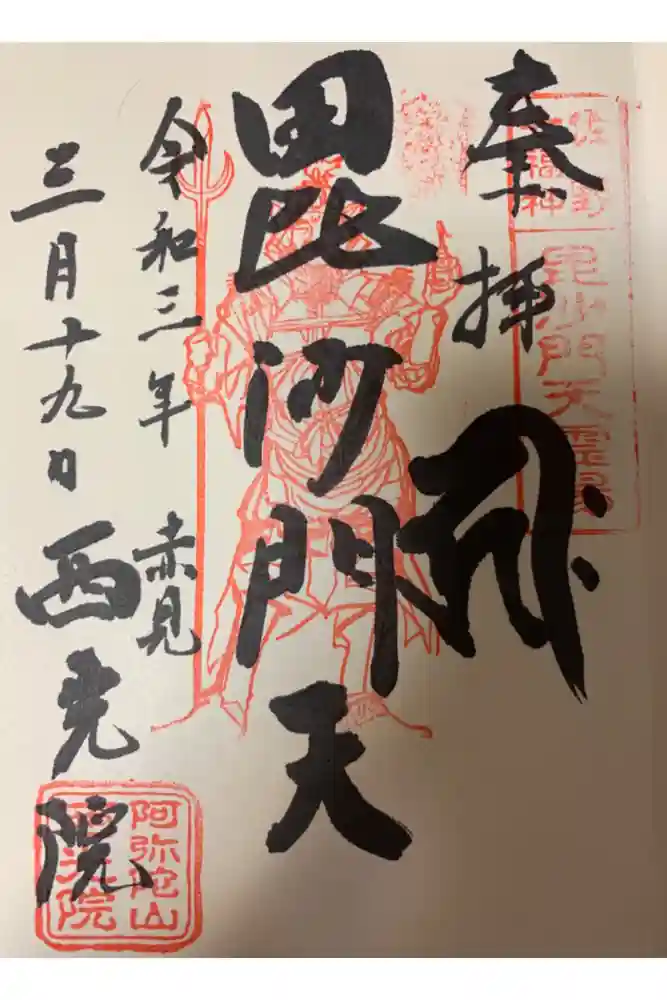 奉拝
佐野
七福神
毘沙門天霊場
毘沙門天
令和三年
赤見
三月十九日
西光院
阿弥陀山
西光院